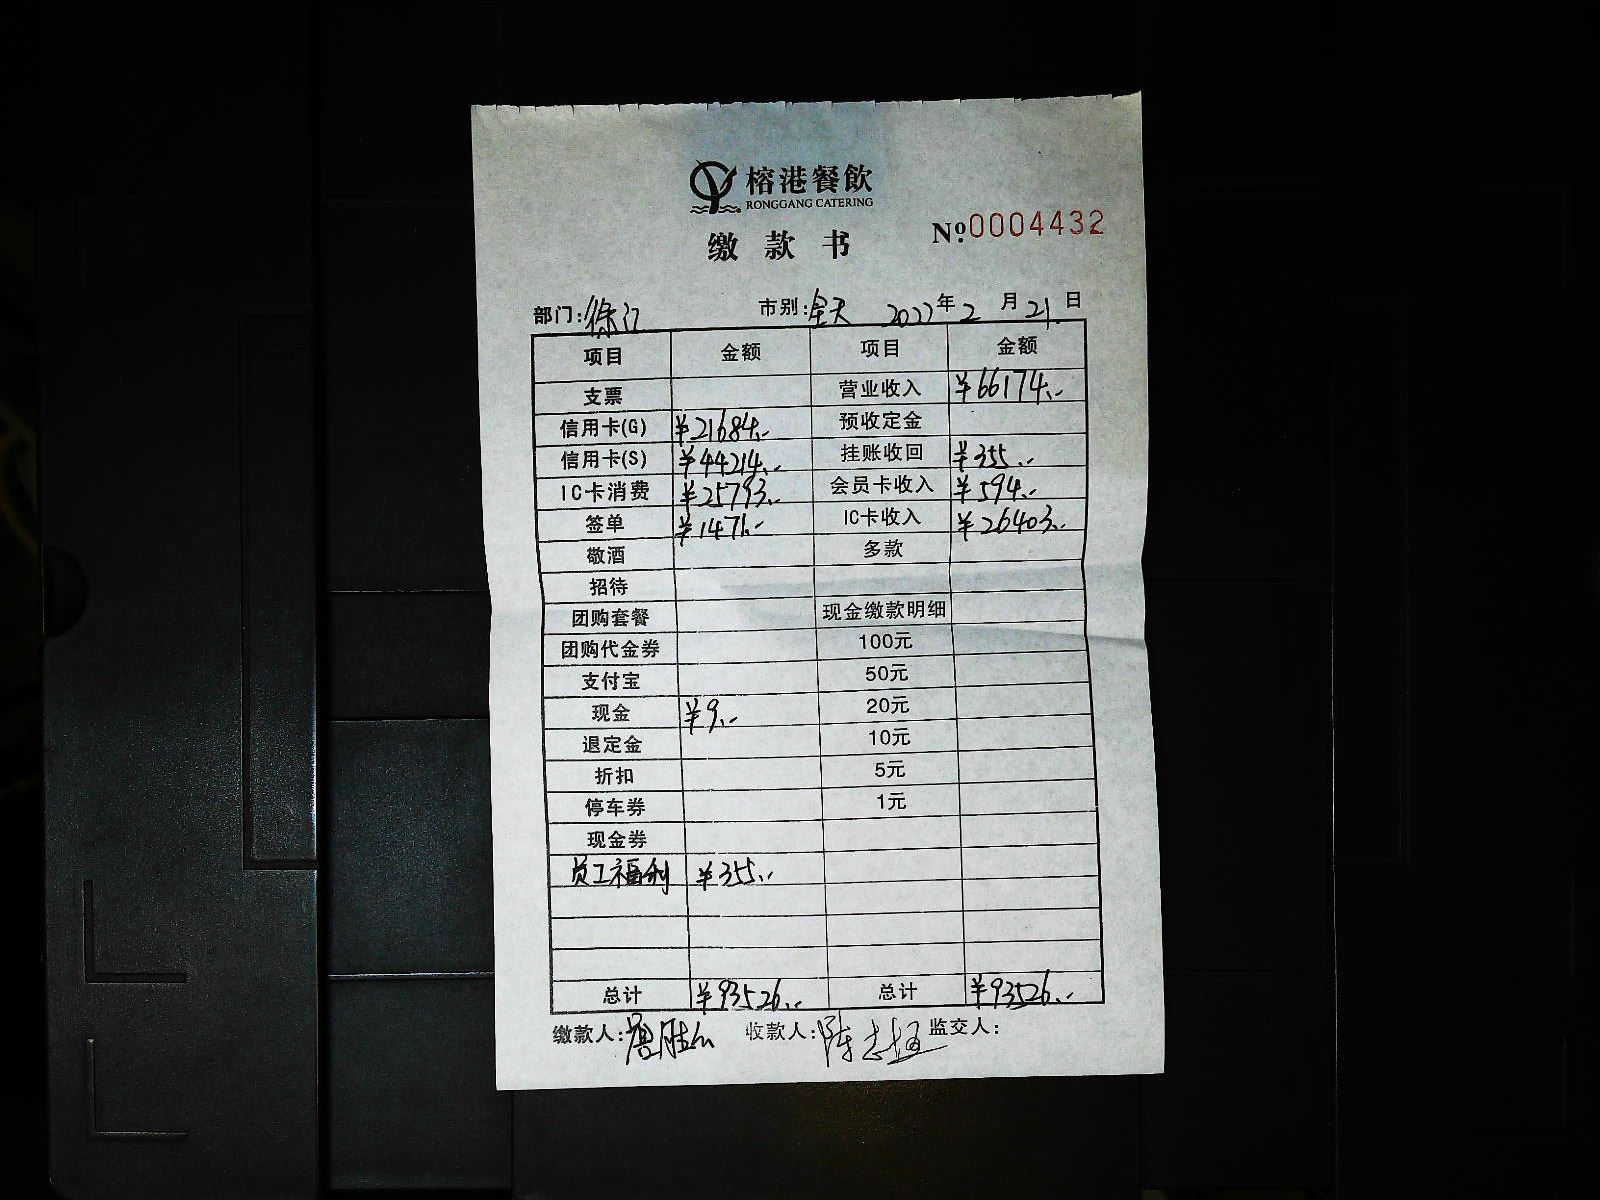 榕港餐飲
RONGGANG CATERING
缴款书
No.0004432
部门:徐汇 市别:全天 2022年2月21日
项目 金额 项目 金额
支票 营业收入 ¥66174.-
信用卡(G) ¥21684.- 预收定金
信用卡(S) ¥44214.- 挂账收回 ¥355.-
IC卡消费 ¥25793.- 会员卡收入 ¥594.-
签单 ¥1471.- IC卡收入 ¥26403.-
敬酒 多款
招待
团购套餐 现金缴款明细
团购代金券 100元
支付宝 50元
现金 ¥9.- 20元
退定金 10元
折扣 5元
停车券 1元
现金券
员工福利 ¥355.-
总计 ¥93526.- 总计 ¥93526.-
缴款人: 收款人:陈志 监交人: